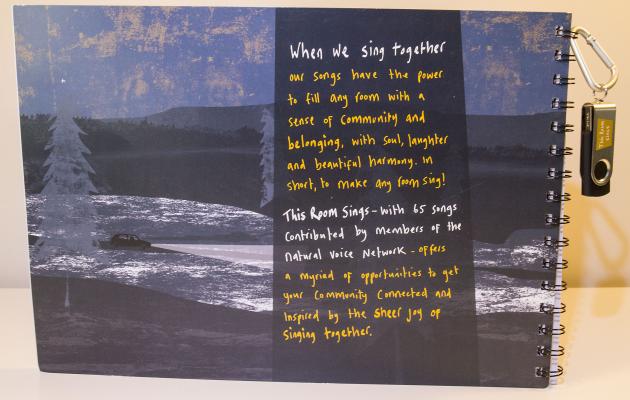 When we sing together
our songs have the power
to fill any room with a
sense of community and
belonging, with soul, laughter
and beautiful harmony. In
short, to make any room sing!
This Room Sings - with 65 songs
contributed by members of the
Natural Voice Network - offers
a myriad of opportunities to get
your community connected and
inspired by the sheer joy of
singing together.
This Room
Sings